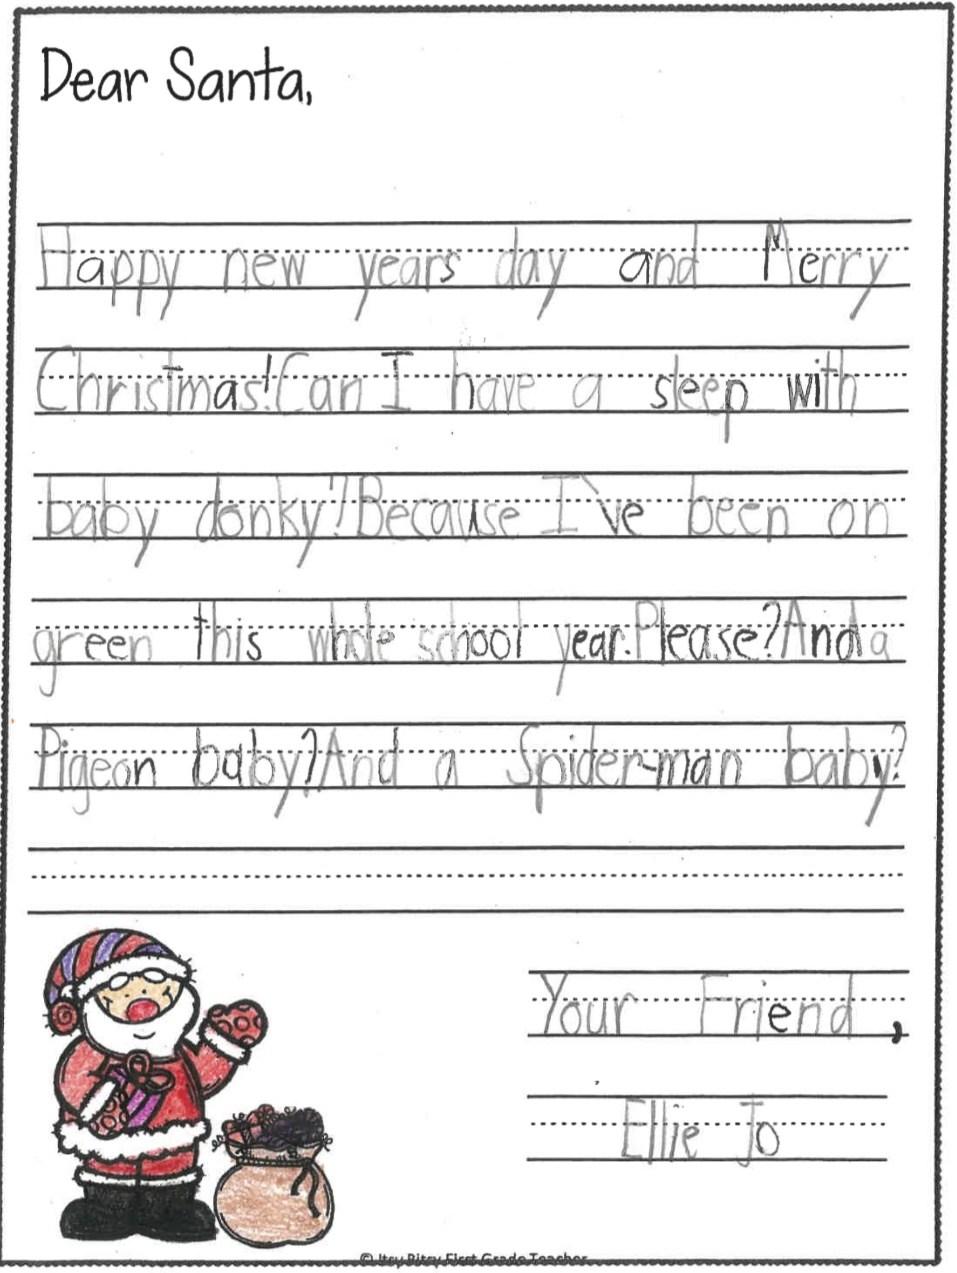 Dear Santa,
Happy new years day and Merry
Christmas! Can I have a sleep with
baby donky? Because I've been on
green this whole school year. Please? And a
Pigeon baby? And a Spider-man baby?
Your Friend,
Ellie Jo
© Itsy Bitsy First Grade Teacher